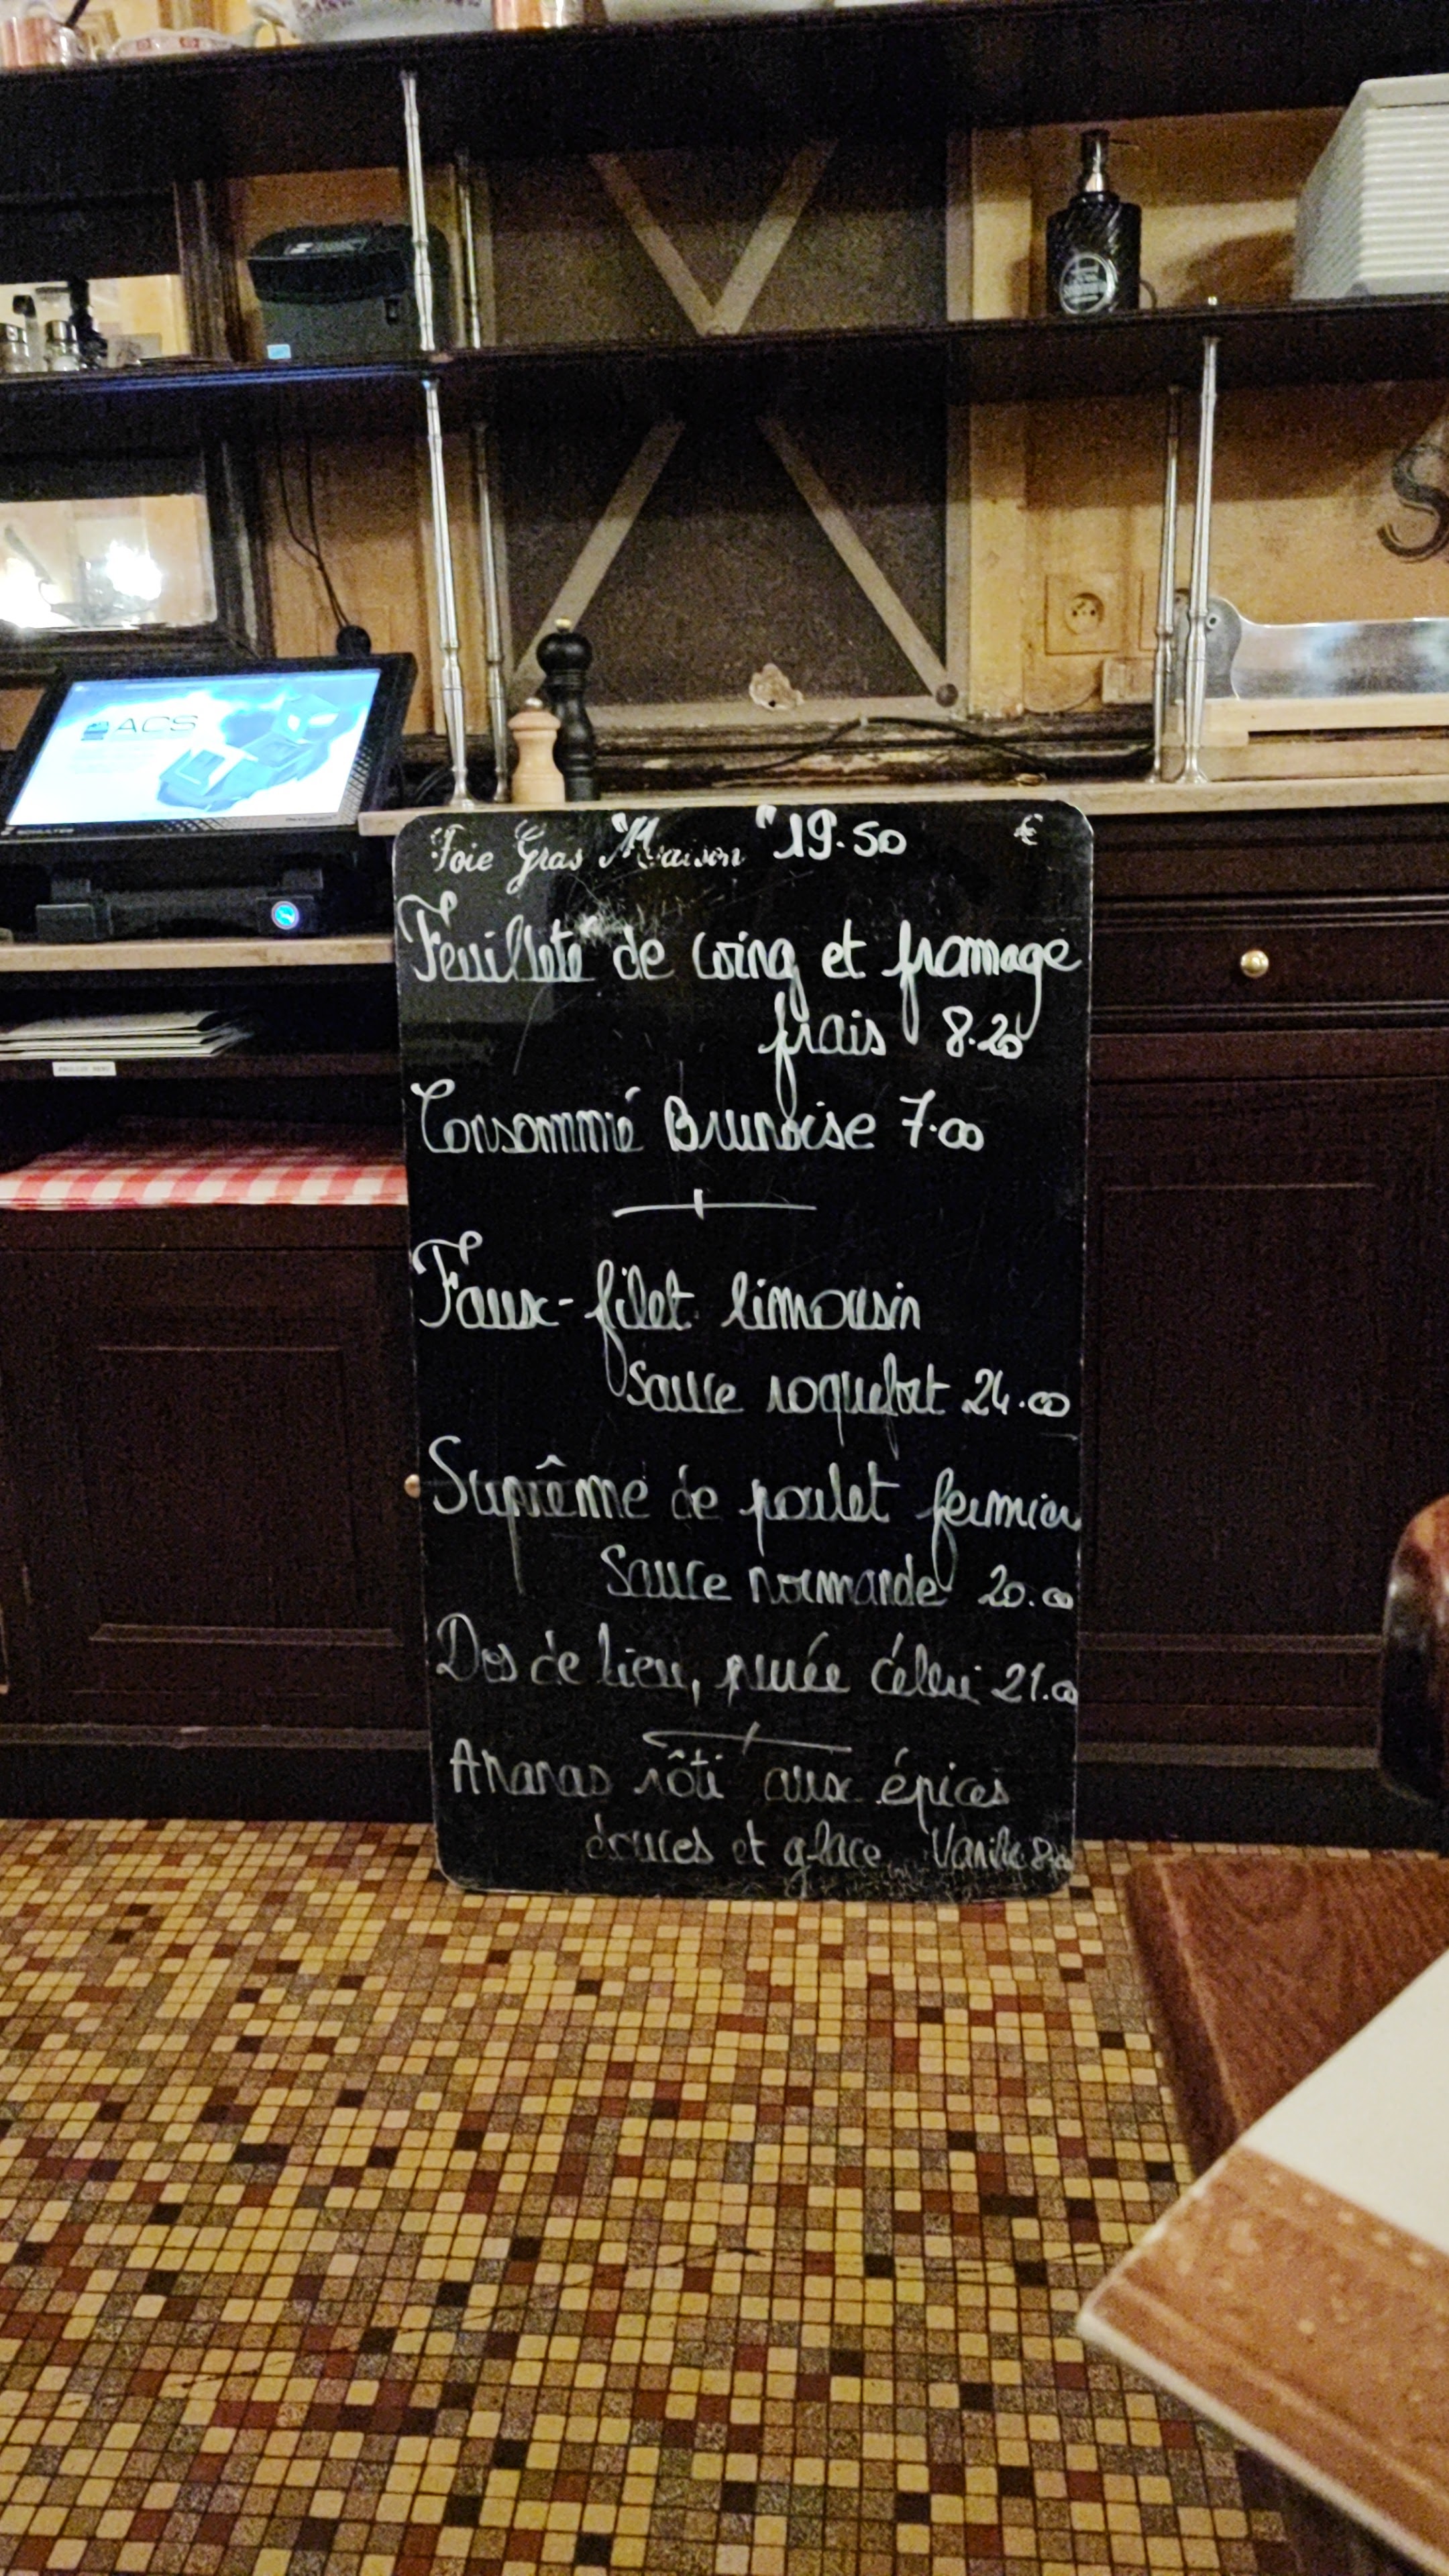 ACS
Foie Gras "Maison" 19.50 €
Feuilleté de coing et fromage
frais 8.20
Consommé Brunoise 7.00
Faux-filet limousin
Sauce roquefort 24.00
Suprême de poulet fermier
Sauce normande 20.00
Dos de lieu, purée céleri 21.00
Ananas rôti aux épices
douces et glace Vanille
ENGLISH MENU